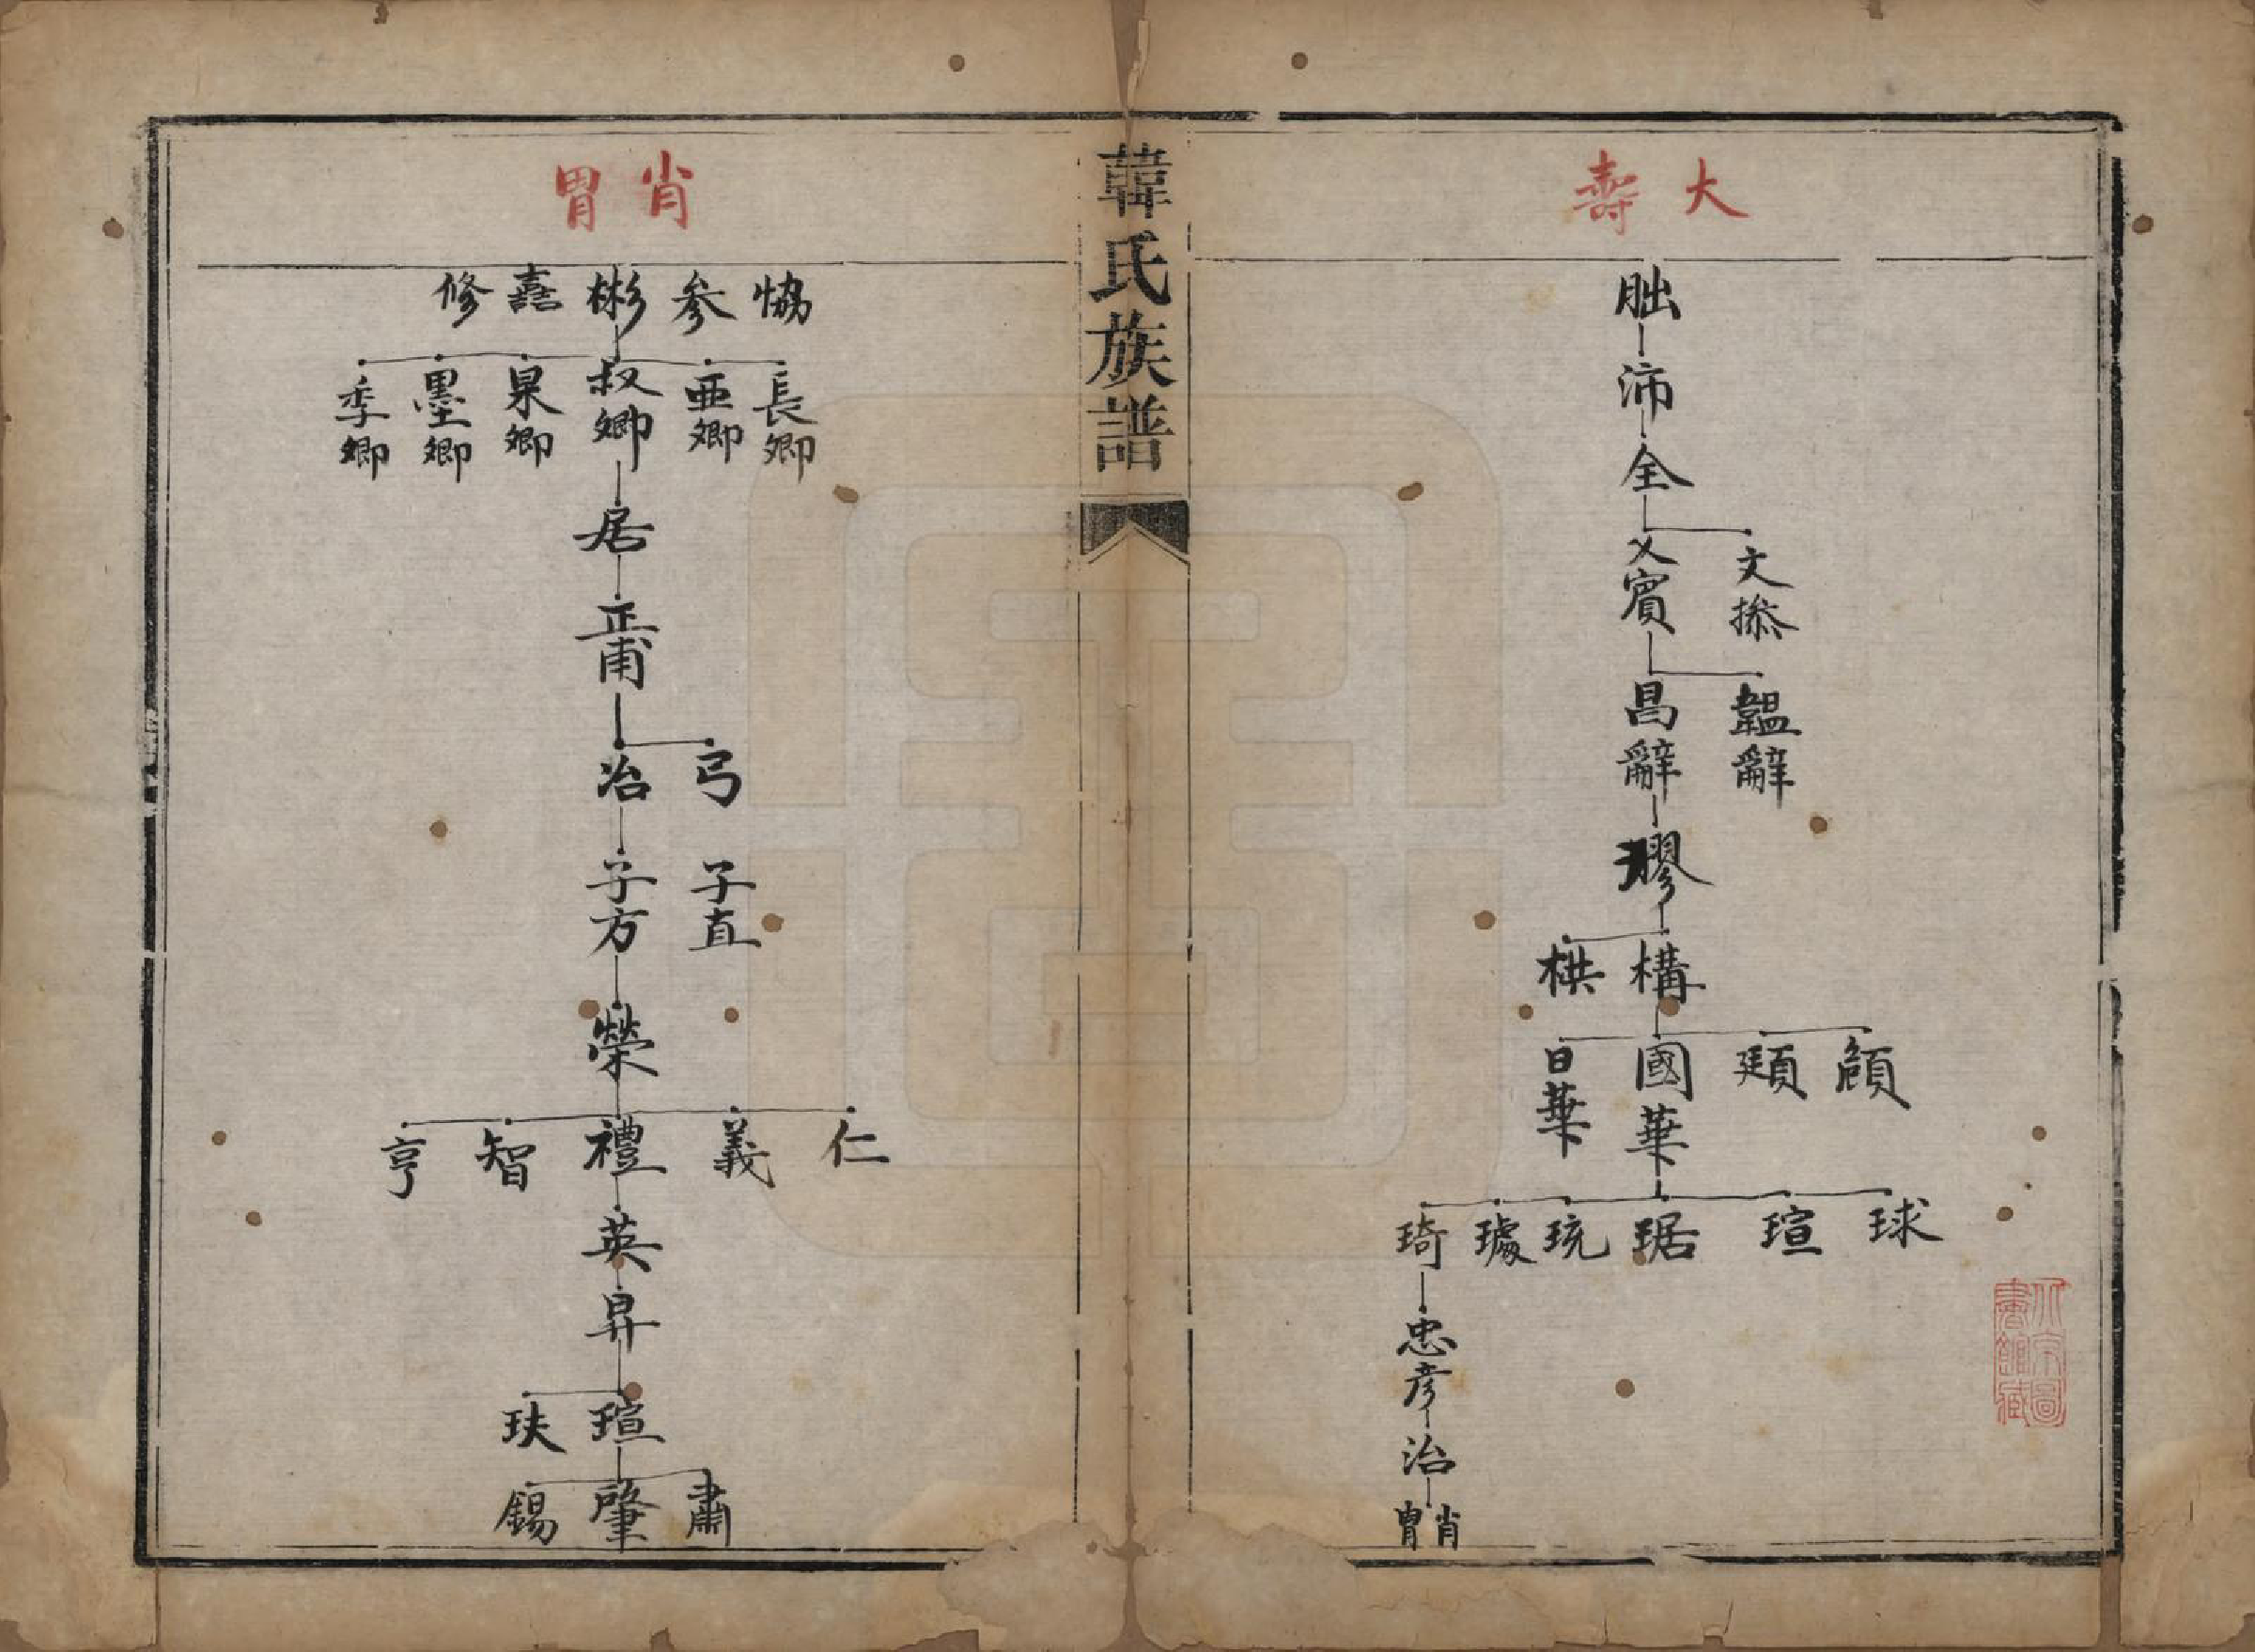 大壽
朏
沛
全
文㨱 文賓
韞辭 昌辭
膠
構 栱
顧 頲 國華 日華
球 瑄 琚 琉 璩 琦
忠彥
治
肖胄
韓氏族譜
肖胃
恊 參 彬 嚞 修
長卿 亜卿 叔卿 杲卿 墨卿 季卿
居
正甫
弓 冶
子直 子方
榮
仁 義 禮 智 亨
英
昇
瑄 玞
肅 肇 錫